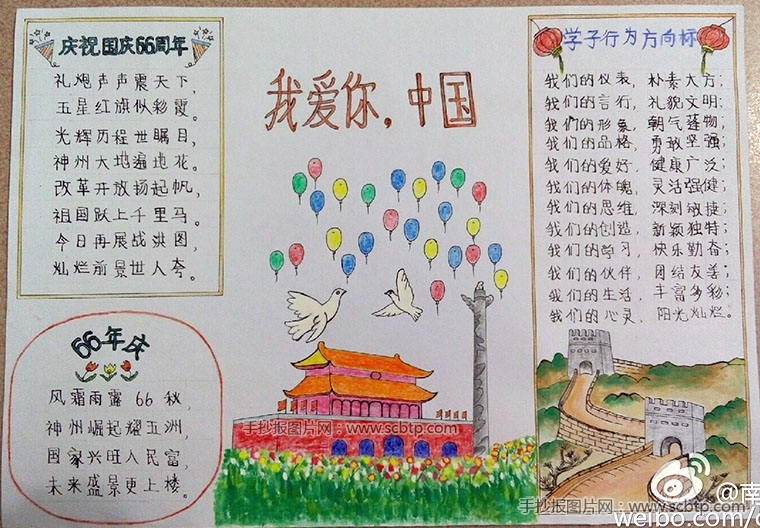 庆祝国庆66周年
礼炮声声震天下，
五星红旗似彩霞。
光辉历程世瞩目，
神州大地遍地花。
改革开放扬起帆，
祖国跃上千里马。
今日再展战洪图，
灿烂前景世人夸。
66年庆
风霜雨露66秋，
神州崛起耀五洲，
国家兴旺人民富，
未来盛景更上楼。
我爱你，中国
手抄报图片网 www.scbtp.com
学子行为方向标
我们的仪表，朴素大方；
我们的言行，礼貌文明；
我们的形象，朝气蓬物；
我们的品格，勇敢坚强；
我们的爱好，健康广泛；
我们的体魄，灵活强健；
我们的思维，深刻敏捷；
我们的创造，新颖独特；
我们的学习，快乐勤奋；
我们的伙伴，团结友善；
我们的生活，丰富多彩；
我们的心灵，阳光灿烂。
手抄报图片网 www.scbtp.com
@南
weibo.com/